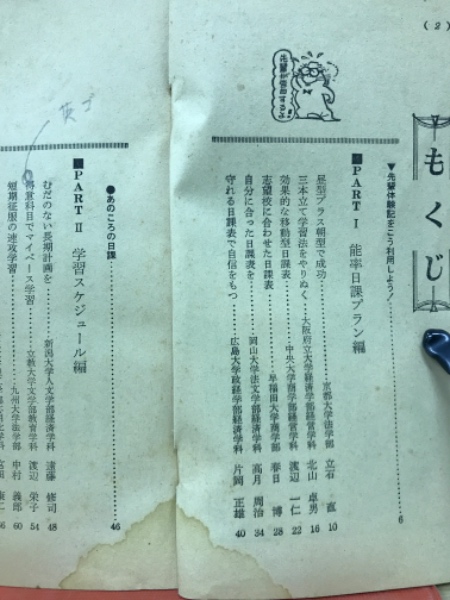 (2)
もくじ
▼先輩体験記をこう利用しよう！……6
■PART Ⅰ 能率日課プラン編
昼型プラス朝型で成功……京都大学法学部 立石 直 10
三本立て学習法をやりぬく…大阪府立大学経済学部経営学科 北山 卓男 16
効果的な移動型日課表……中央大学商学部経営学科 渡辺 一仁 22
志望校に合わせた日課表……早稲田大学商学部 春日 博 28
自分に合った日課表を……岡山大学法文学部経済学科 高月 周治 34
守れる日課表で自信をもつ……広島大学政経学部経済学科 片岡 正雄 40
●あのころの日課……46
■PART Ⅱ 学習スケジュール編
むだのない長期計画を……新潟大学人文学部経済学科 遠藤 修司 48
得意科目でマイペース学習……立教大学文学部教育学科 渡辺 栄子 54
短期征服の速攻学習……九州大学法学部 中村 義郎 60